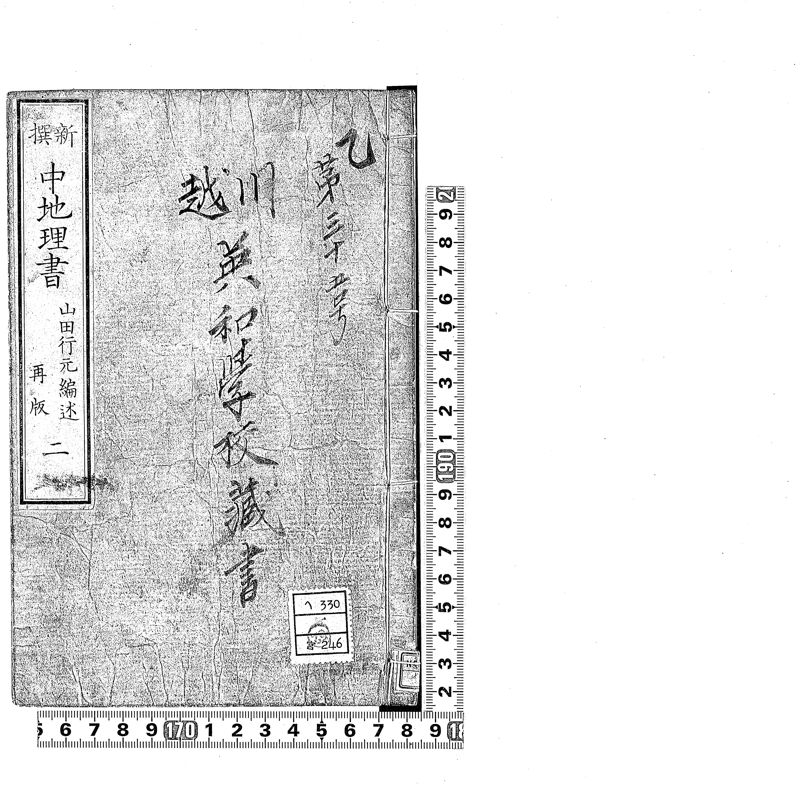 新撰
中地理書
山田行元編述
再版
二
乙
第三十五号
川越
英和学校蔵書
ヘ 330
246
6 7 8 9 170 1 2 3 4 5 6 7 8 9
9 8 7 6 5 4 3 2 1 190 9 8 7 6 5 4 3 2